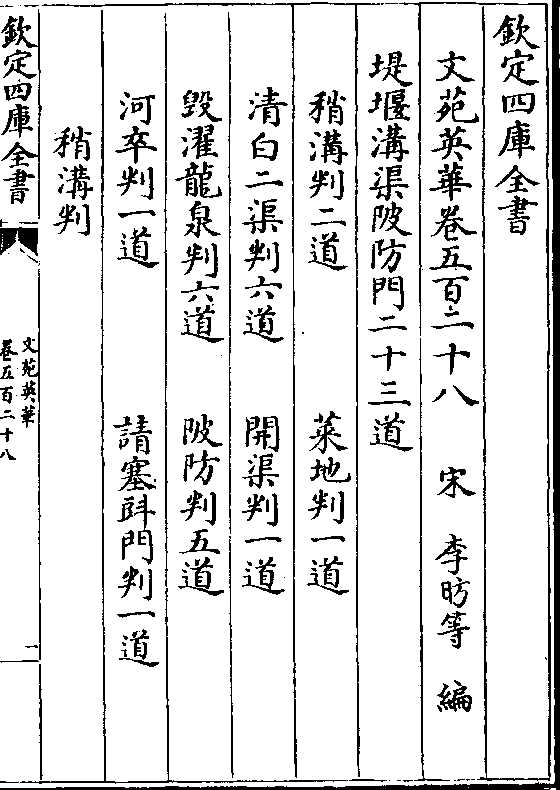 欽定四庫全書
文苑英華卷五百二十八　宋　李昉等　編
堤堰溝渠陂防門二十三道
稍溝判二道　萊地判一道
清白二渠判六道　開渠判一道
毀濯龍泉判六道　陂防判五道
河卒判一道　請塞㪷門判一道
稍溝判
欽定四庫全書
文苑英華
卷五百二十八
一